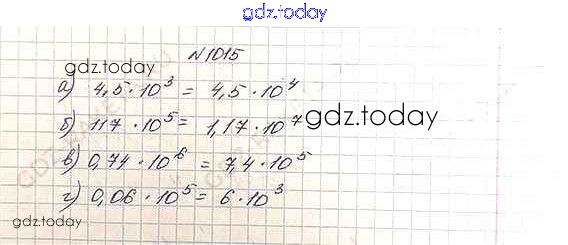 gdz.today
N1015
gdz.today
а) 4,5 · 10³ = 4,5 · 10⁴
б) 117 · 10⁵ = 1,17 · 10⁷
gdz.today
в) 0,74 · 10⁶ = 7,4 · 10⁵
г) 0,06 · 10⁵ = 6 · 10³
gdz.today